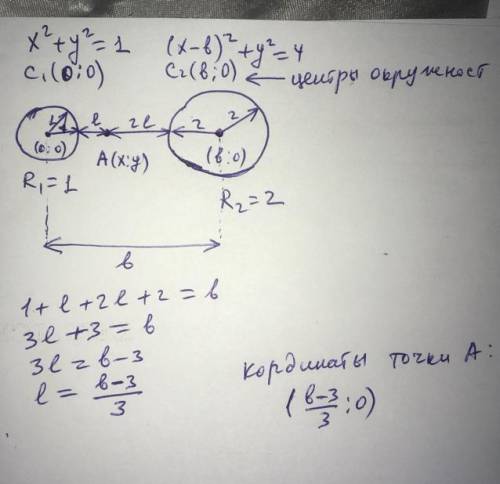 x² + y² = 1 (x-в)² + y² = 4
C₁(0;0) C₂(в;0) ← центры окружност
1 l 2l 2 2
(0;0) A(x;y) (в;0)
R₁ = 1 R₂ = 2
в
1 + l + 2l + 2 = в
3l + 3 = в
3l = в - 3
l = (в-3)/3
кординаты точки A:
((в-3)/3 ; 0)